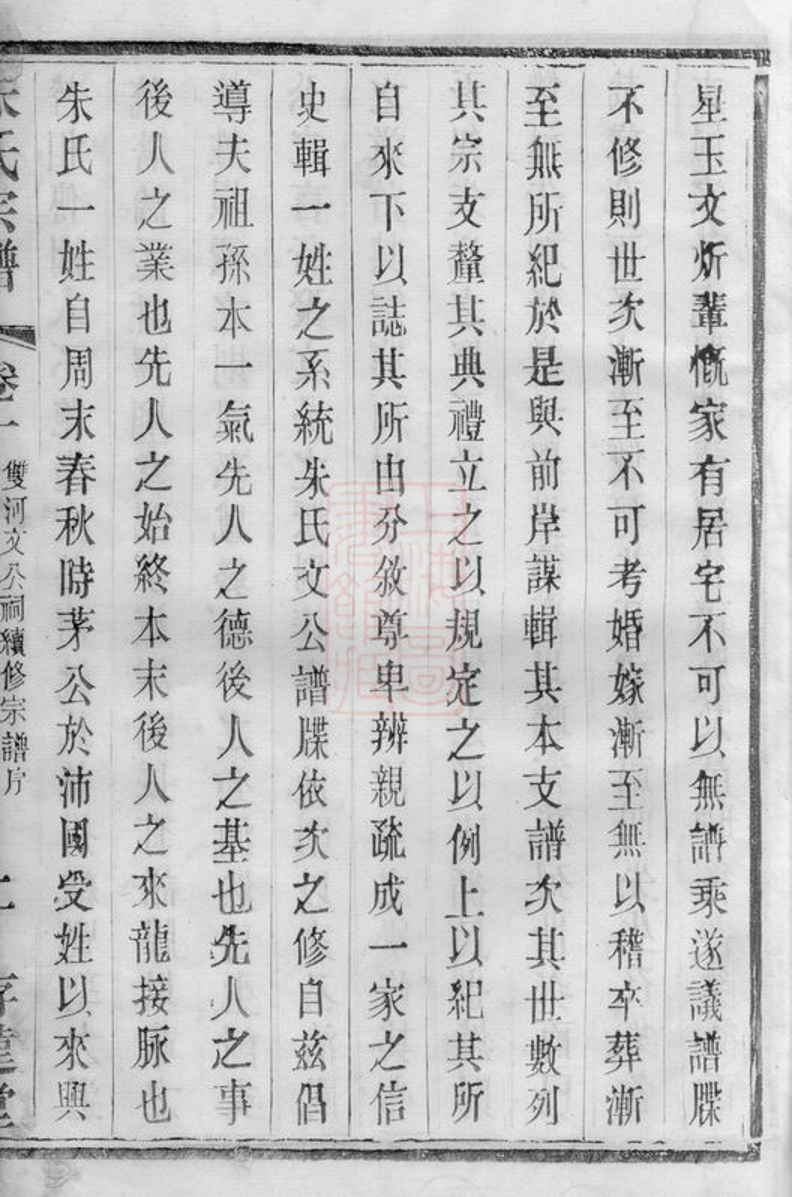 星玉文炘輩慨家有居宅不可以無譜乘遂議譜牒
不修則世次漸至不可考婚嫁漸至無以稽卒葬漸
至無所紀於是與前岸謀輯其本支譜次其世數列
其宗支釐其典禮立之以規定之以例上以紀其所
自來下以誌其所由分敘尊卑辨親疏成一家之信
史輯一姓之系統朱氏文公譜牒依次之修自茲倡
導夫祖孫本一氣先人之德後人之基也先人之事
後人之業也先人之始終本末後人之來龍接脉也
朱氏一姓自周末春秋時茅公於沛國受姓以來興
朱氏宗譜 卷一 雙河文公祠續修宗譜序